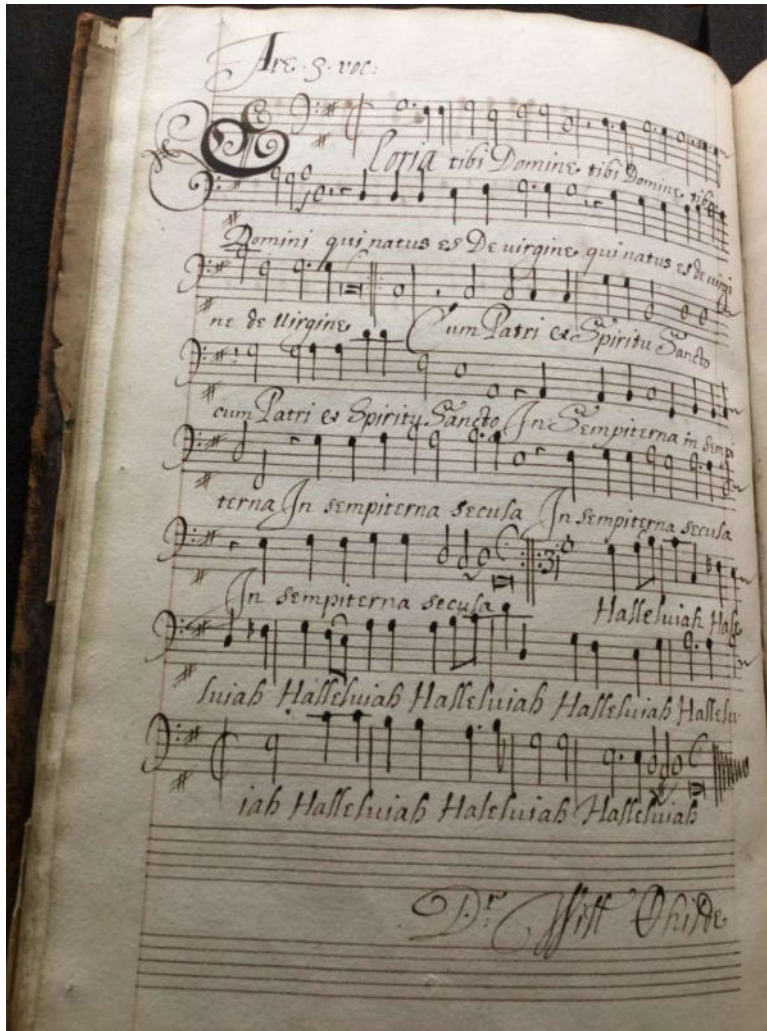 Are · 3 · voc:
Gloria tibi Domine tibi Domine tibi
Domini qui natus es De virgine qui natus es de virgi
ne de Virgine Cum Patri et Spiritu Sancto
cum Patri et Spiritu Sancto In Sempiterna in sempi
terna In sempiterna secula In sempiterna secula
In sempiterna secula Halleluiah Hale
luiah Halleluiah Halleluiah Halleluiah Hallelu
iah Halleluiah Haleluiah Halleluiah
Dr Will Childe